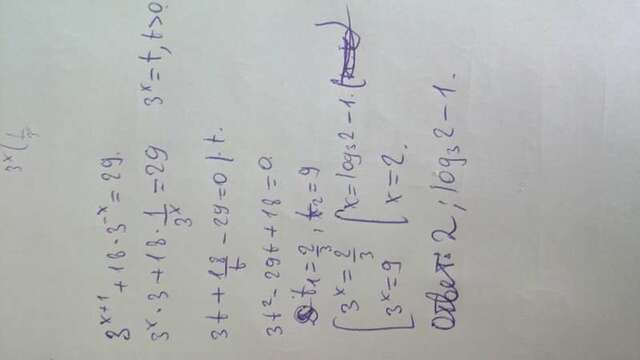 3^x (1/3
3^{x+1} + 18 · 3^{-x} = 29.
3^x · 3 + 18 · 1/3^x = 29   3^x = t, t > 0
3t + 18/t - 29 = 0 | · t.
3t² - 29t + 18 = 0.
t₁ = 2/3, t₂ = 9
[ 3^x = 2/3   [ x = log₃2 - 1.
[ 3^x = 9   [ x = 2.
Ответ: 2; log₃2 - 1.